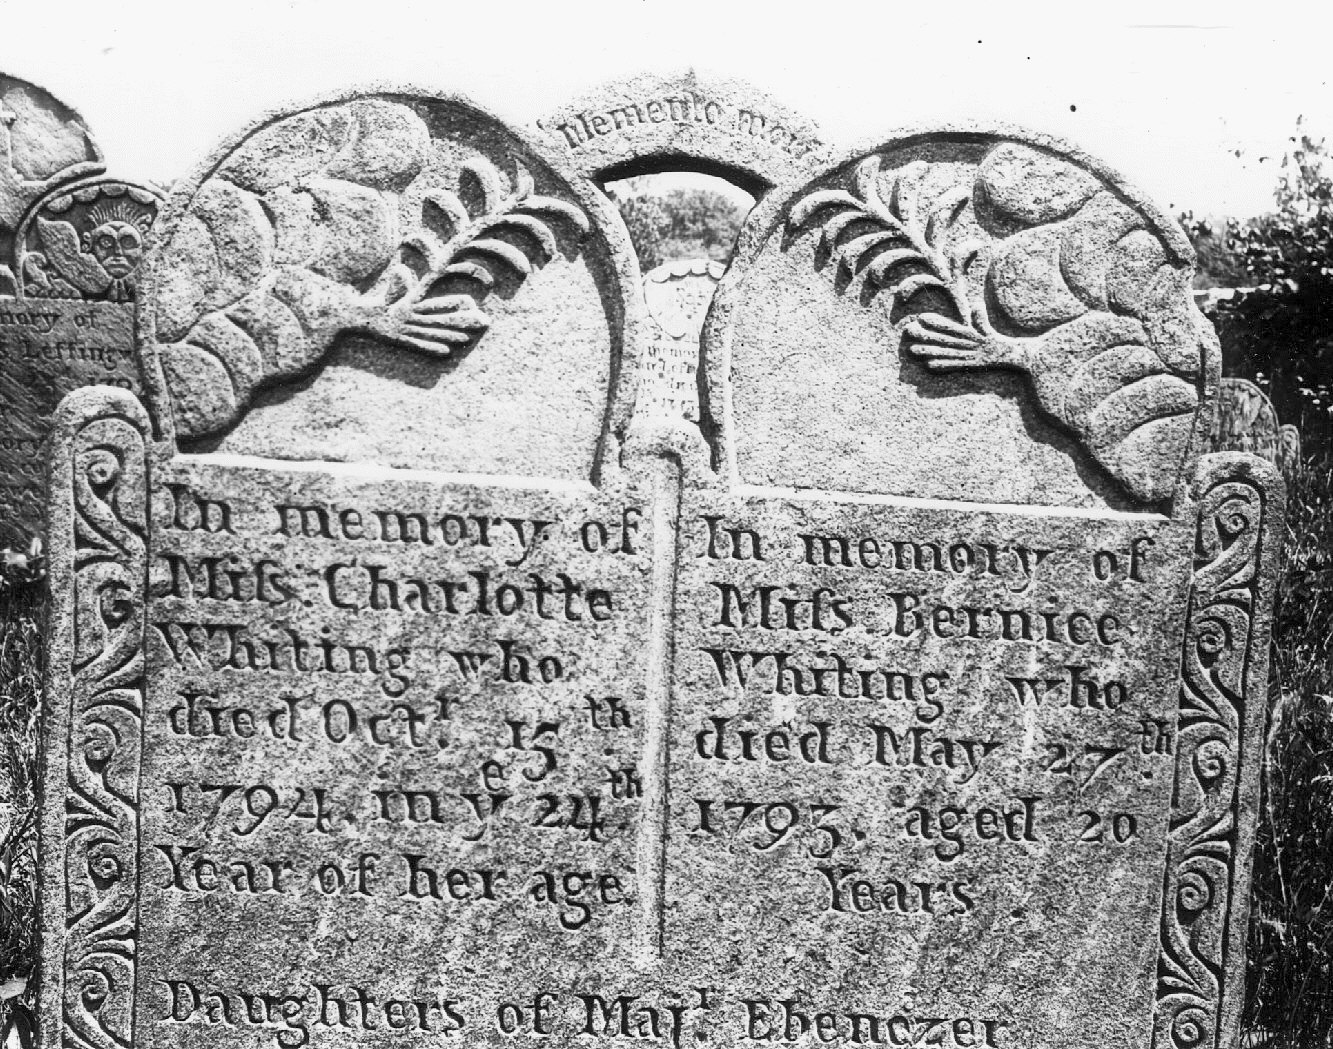 Memento mori
In memory of
Miſs. Charlotte
Whiting who
died Octr. 15th.
1794. in ye 24th.
Year of her age.
In memory of
Miſs. Bernice
Whiting who
died May 27th.
1793. aged 20
Years.
Daughters of Majr. Ebenezer
mory of
Leffing